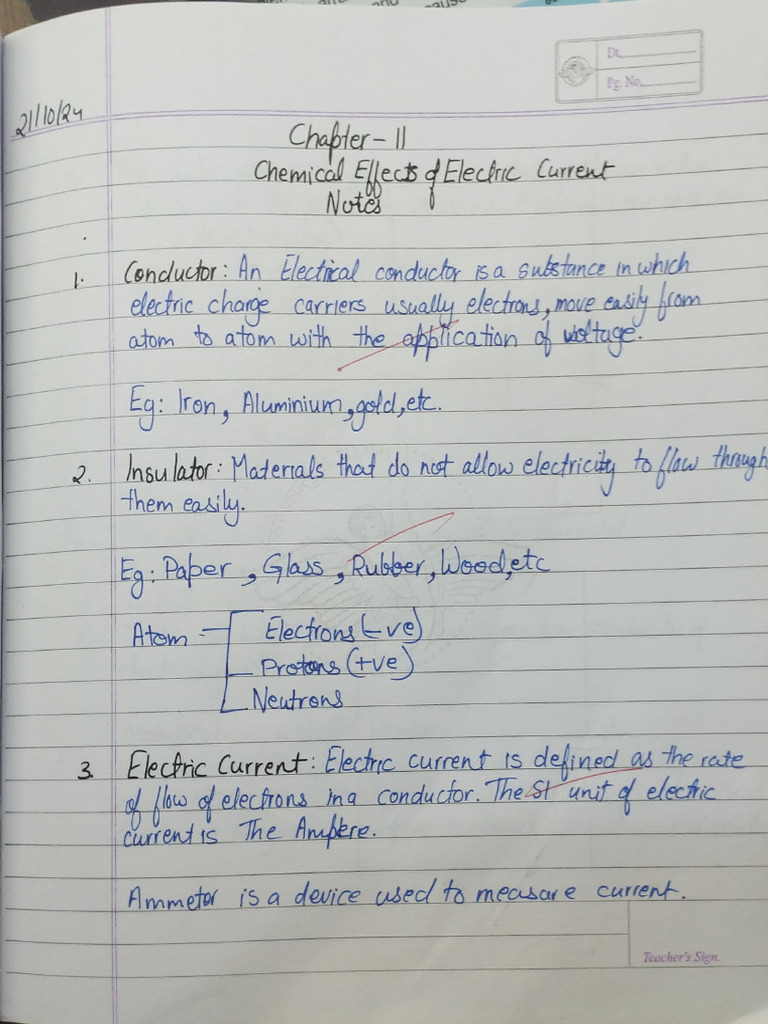 and cause
Dt.
Pg. No.
21/10/24
Chapter - 11
Chemical Effects of Electric Current
Notes
1. Conductor: An Electrical conductor is a substance in which
electric charge carriers usually electrons, move easily from
atom to atom with the application of voltage.
Eg: Iron, Aluminium, gold, etc.
2. Insulator: Materials that do not allow electricity to flow through
them easily.
Eg: Paper, Glass, Rubber, Wood, etc
Atom - Electrons (-ve)
Protons (+ve)
Neutrons
3. Electric Current: Electric current is defined as the rate
of flow of electrons in a conductor. The SI unit of electric
current is The Ampere.
Ammetor is a device used to measure current.
Teacher's Sign.